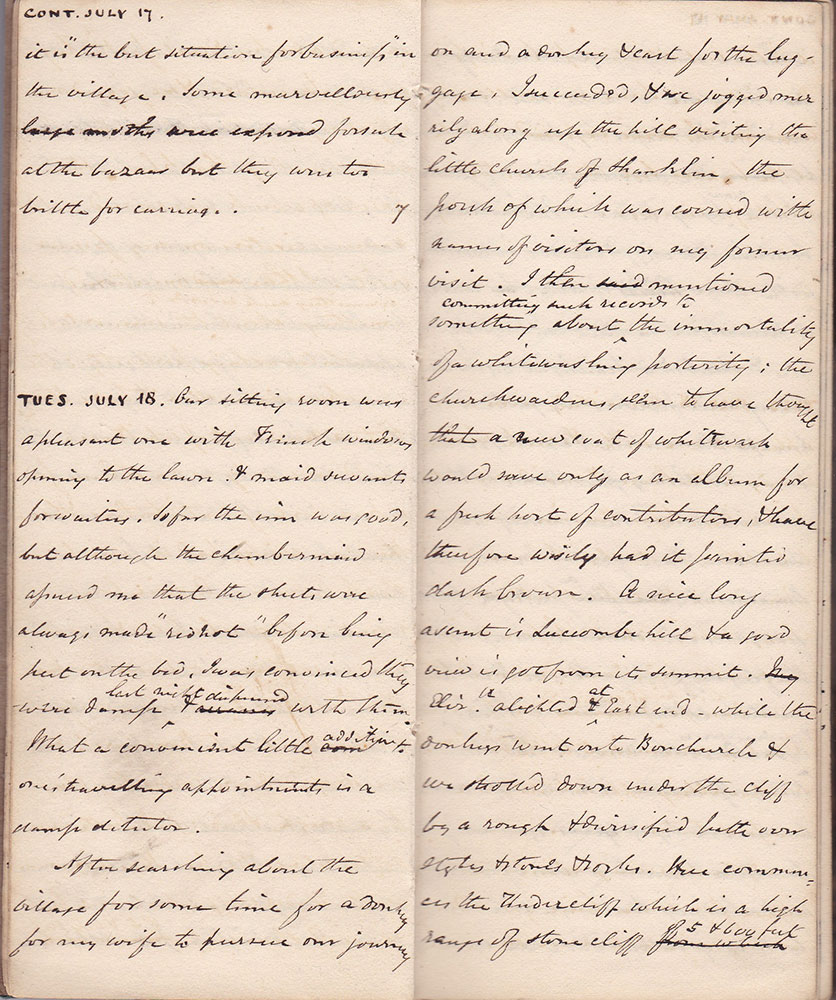 CONT. JULY 17.
it is "the best situation for business" in
the village. Some marvellously
large moths were exposed for sale
at the bazaar but they were too
brittle for carriage.
TUES. JULY 18. Our sitting room was
a pleasant one with French windows
opening to the lawn. & maid servants
for waiters. So far the inn was good,
but although the chambermaid
assured me that the sheets were
always made "red hot" before being
put on the bed, I was convinced they
last night dispensed
were damp & with them
What a convenient little addition to
one's travelling appointments is a
damp detector.
After searching about the
village for some time for a donkey
for my wife to pursue our journey
on and a donkey & cart for the lug-
gage, I succeeded, & we jogged mer
rily along up the hill visiting the
little church of Shanklin the
porch of which was covered with
names of visitors on my former
visit. I then said mentioned
committing such records to
something about the immortality
of a whitewashing posterity; the
churchwardens seem to have thought
that a new coat of whitewash
would serve only as an album for
a fresh host of contributors, & have
therefore wisely had it painted
dark brown. A nice long
ascent is Luccombe hill & a good
view is got from its summit.
alighted at East end - while the
donkeys went on to Bonchurch &
we strolled down under the cliff
by a rough & diversified path over
styles & stones & rocks. Here commen-
ces the Undercliff which is a high
of 5 & 600 feet
range of stone cliff from which